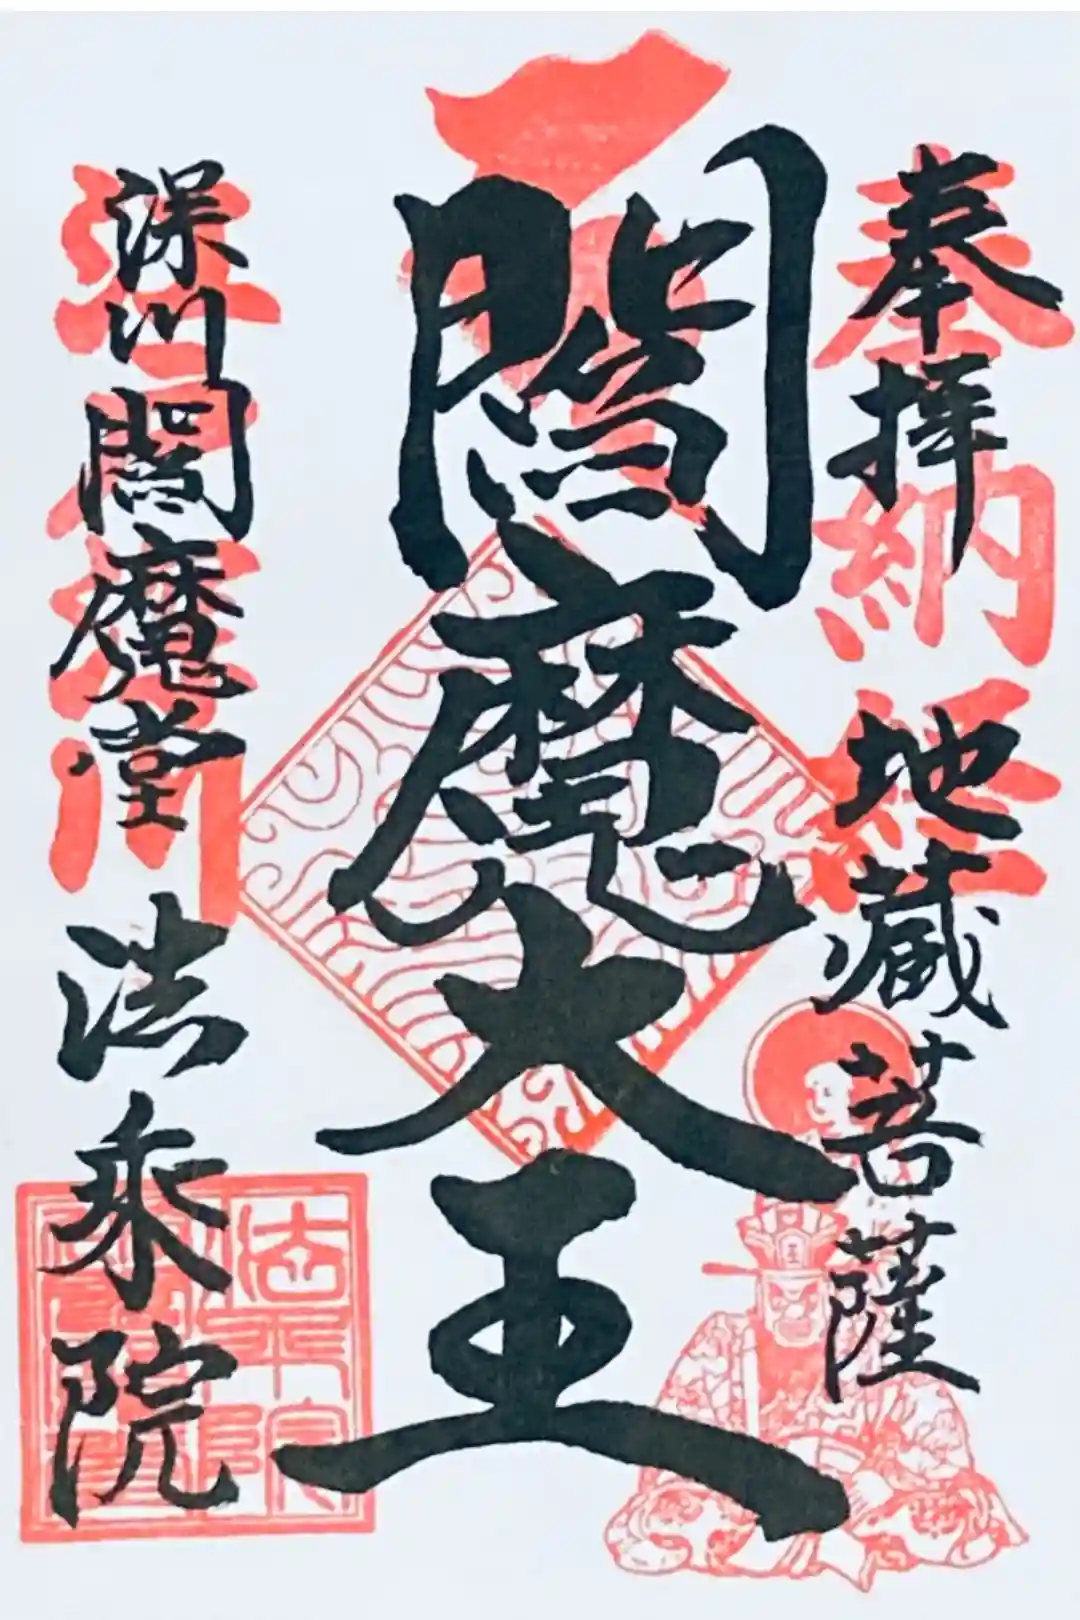 奉拝
奉納経
地蔵菩薩
閻魔大王
深川閻魔堂
法乗院
法乗院
王